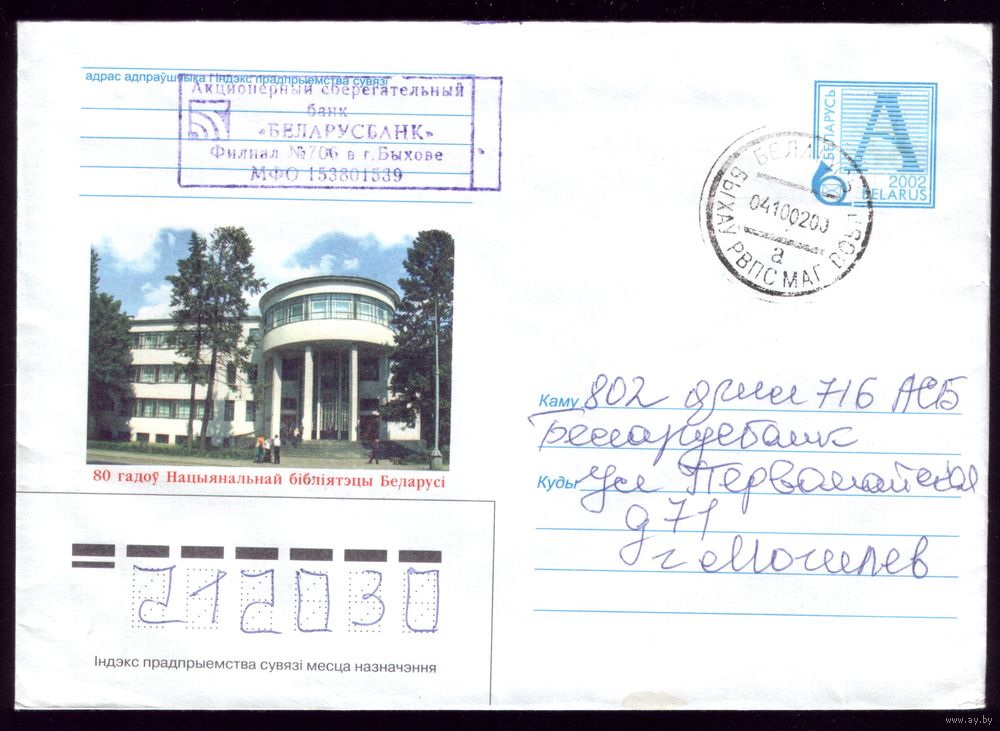 адрас адпраўшчыка і індэкс прадпрыемства сувязі
Акционерный сберегательный
банк
«БЕЛАРУСБАНК»
Филиал №706 в г.Быхове
МФО 153801539
БЕЛАРУСЬ
A
2002
BELARUS
БЫХАЎ РВПС МАГ ВОБЛ
0410020
а
80 гадоў Нацыянальнай бібліятэцы Беларусі
Каму 802 716 АСБ
Беларусбанк
Куды ул Первомайская
д 71
г Могилев
212030
Індэкс прадпрыемства сувязі месца назначэння
www.ay.by